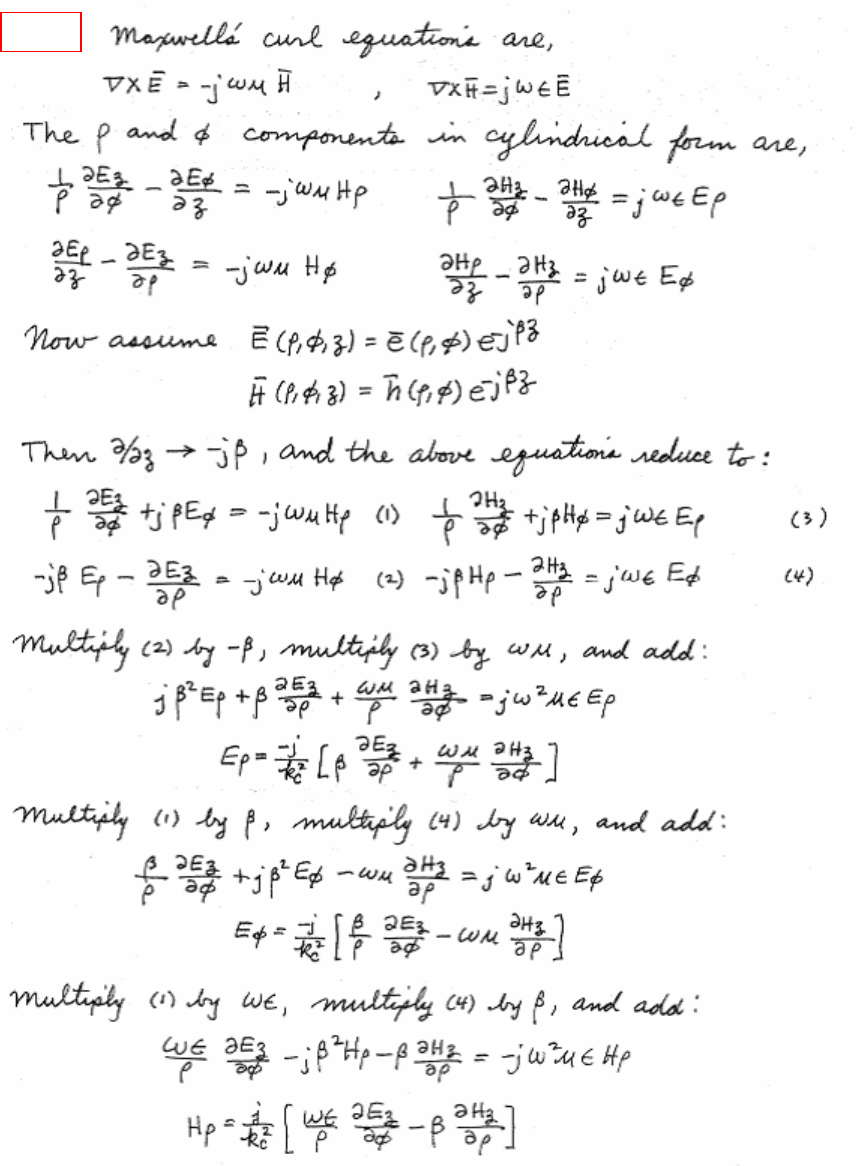 Maxwell's curl equations are,
∇×Ē = -jωμ H̄ , ∇×H̄ = jωϵ Ē
The ρ and φ components in cylindrical form are,
1/ρ ∂Ez/∂φ - ∂Eφ/∂z = -jωμ Hρ 1/ρ ∂Hz/∂φ - ∂Hφ/∂z = jωϵ Eρ
∂Eρ/∂z - ∂Ez/∂ρ = -jωμ Hφ ∂Hρ/∂z - ∂Hz/∂ρ = jωϵ Eφ
Now assume Ē(ρ,φ,z) = ē(ρ,φ) e^-jβz
H̄(ρ,φ,z) = h̄(ρ,φ) e^-jβz
Then ∂/∂z → -jβ, and the above equations reduce to:
1/ρ ∂Ez/∂φ + jβEφ = -jωμHρ (1) 1/ρ ∂Hz/∂φ + jβHφ = jωϵ Eρ (3)
-jβ Eρ - ∂Ez/∂ρ = -jωμ Hφ (2) -jβHρ - ∂Hz/∂ρ = jωϵ Eφ (4)
Multiply (2) by -β, multiply (3) by ωμ, and add:
jβ²Eρ + β ∂Ez/∂ρ + ωμ/ρ ∂Hz/∂φ = jω²μϵ Eρ
Eρ = -j/kc² [β ∂Ez/∂ρ + ωμ/ρ ∂Hz/∂φ]
Multiply (1) by β, multiply (4) by ωμ, and add:
β/ρ ∂Ez/∂φ + jβ²Eφ - ωμ ∂Hz/∂ρ = jω²μϵ Eφ
Eφ = -j/kc² [β/ρ ∂Ez/∂φ - ωμ ∂Hz/∂ρ]
Multiply (1) by ωϵ, multiply (4) by β, and add:
ωϵ/ρ ∂Ez/∂φ - jβ²Hρ - β ∂Hz/∂ρ = -jω²μϵ Hρ
Hρ = j/kc² [ωϵ/ρ ∂Ez/∂φ - β ∂Hz/∂ρ]